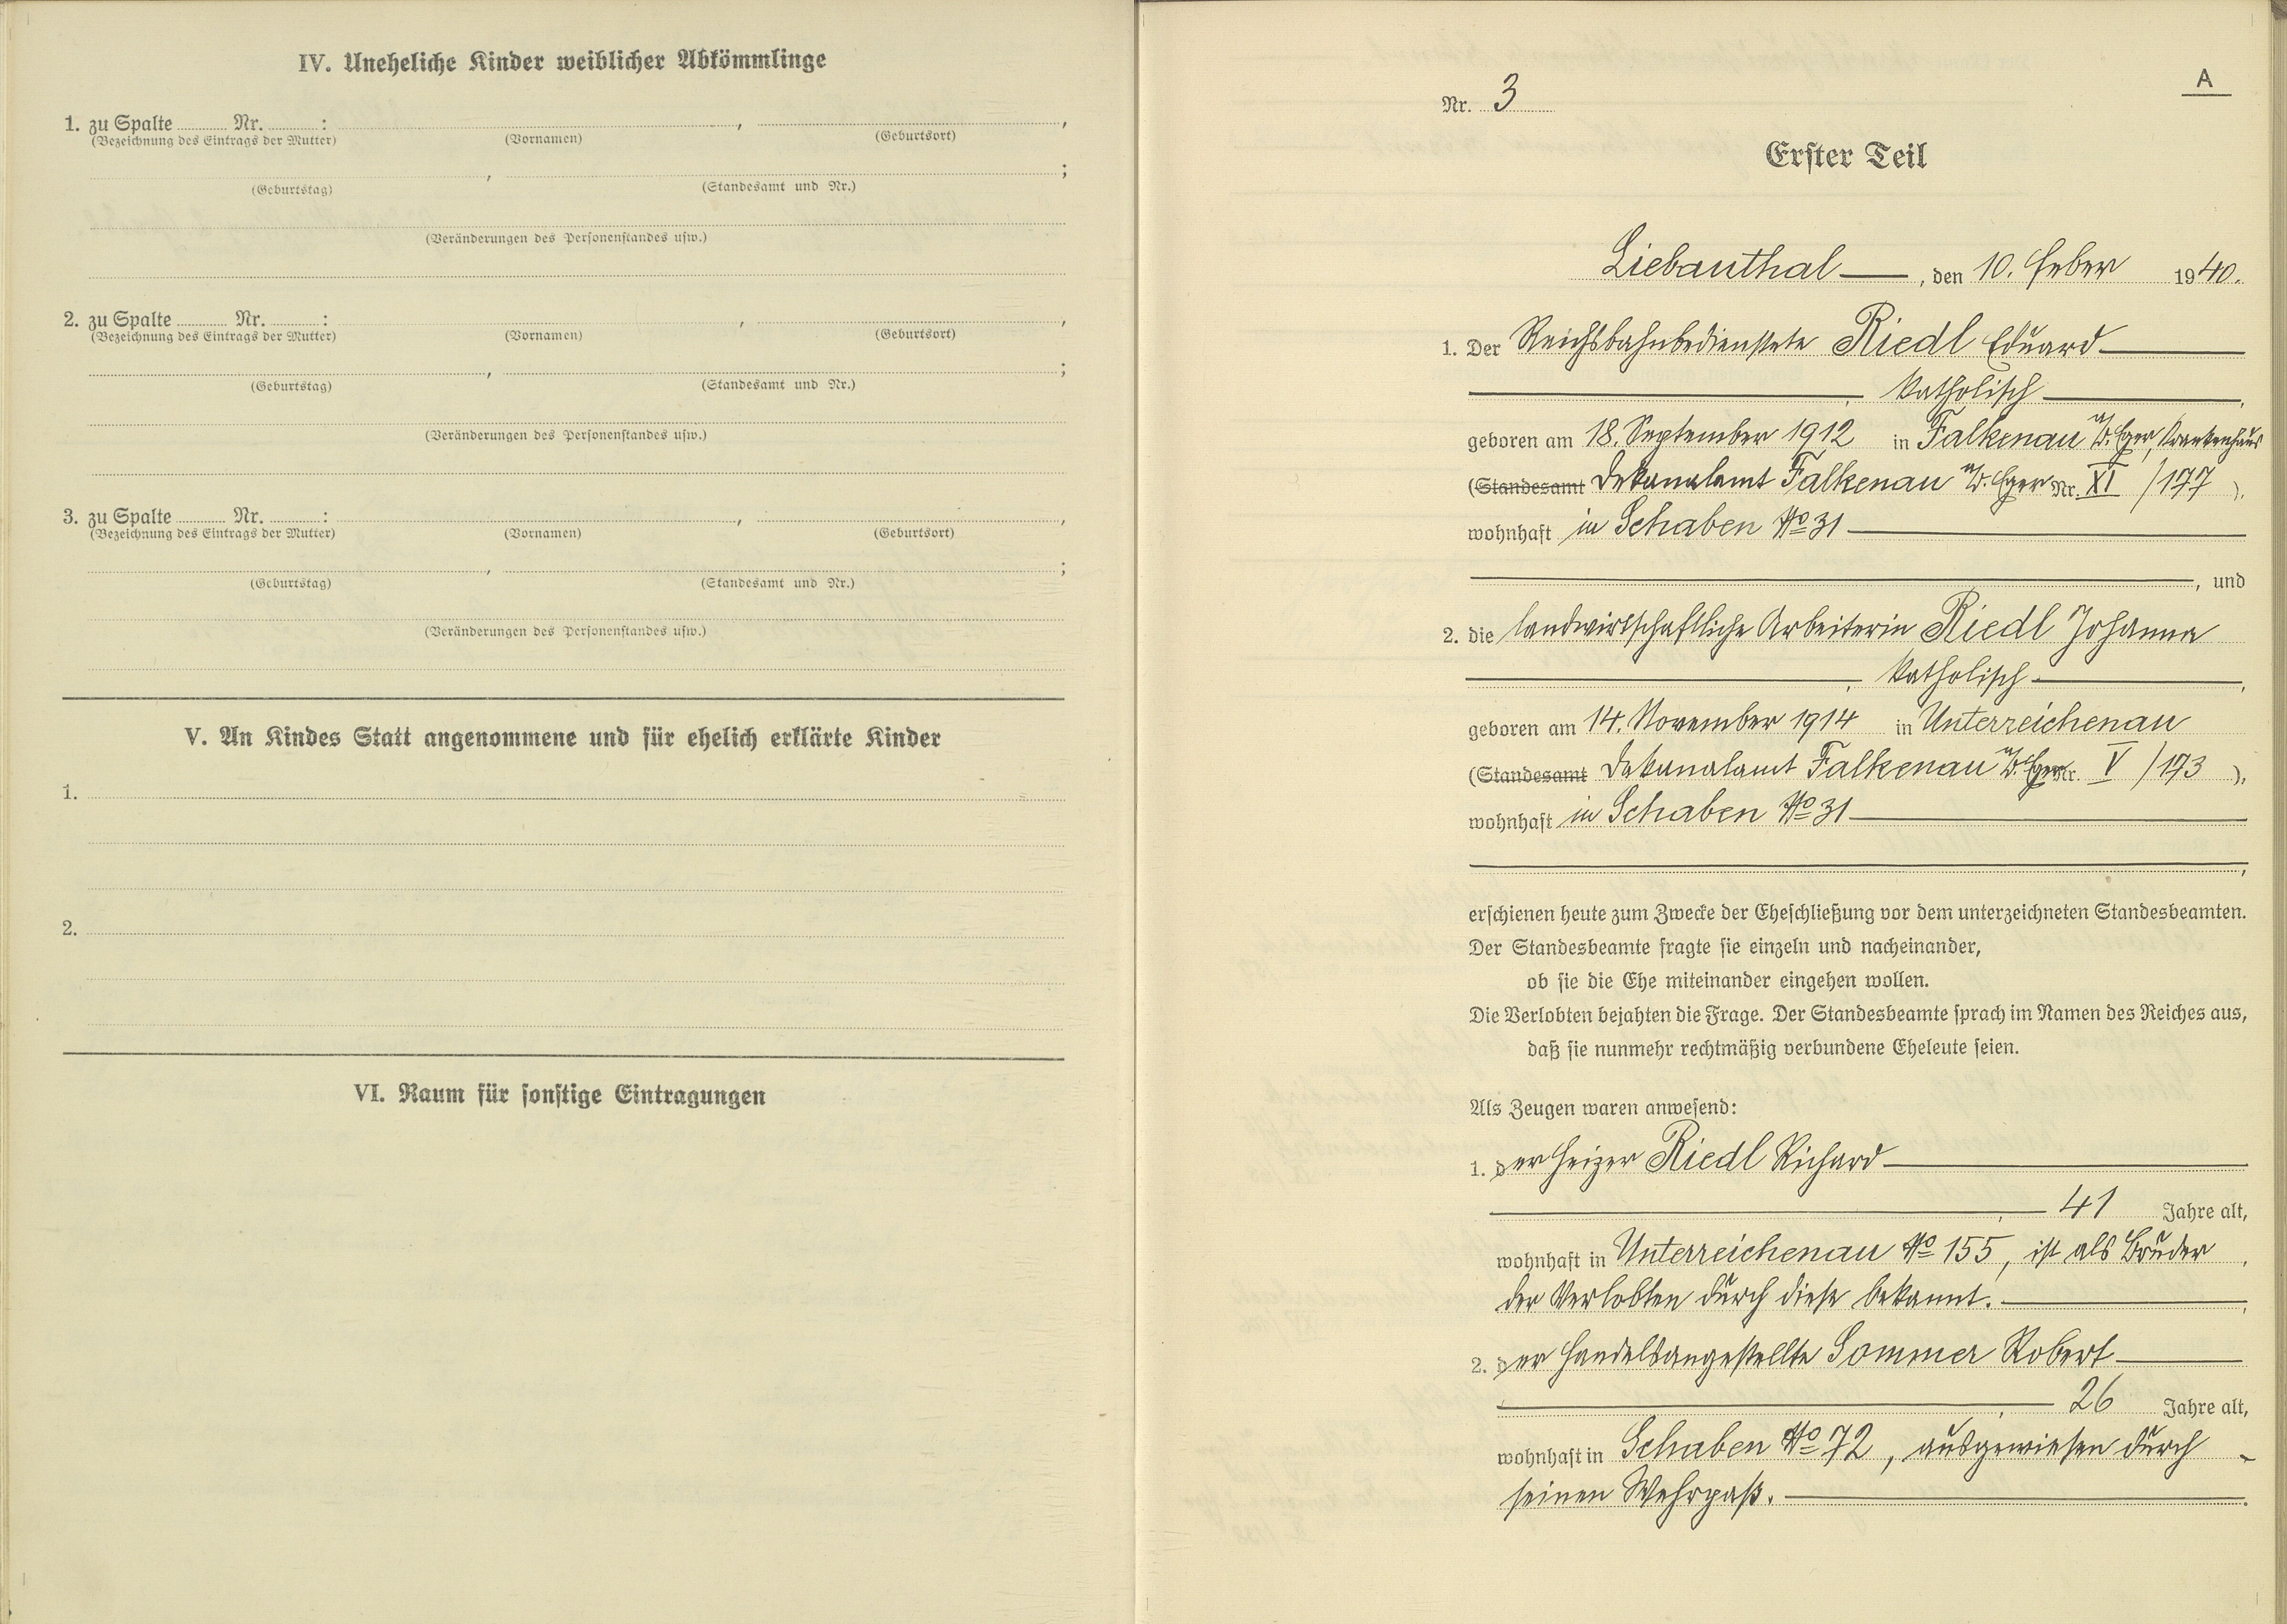 IV. Uneheliche Kinder weiblicher Abkömmlinge
1. zu Spalte ........ Nr. ........ : ........ , ........ ,
(Bezeichnung des Eintrags der Mutter) (Vornamen) (Geburtsort)
........ , ........ ;
(Geburtstag) (Standesamt und Nr.)
(Veränderungen des Personenstandes usw.)
2. zu Spalte ........ Nr. ........ : ........ , ........ ,
(Bezeichnung des Eintrags der Mutter) (Vornamen) (Geburtsort)
........ , ........ ;
(Geburtstag) (Standesamt und Nr.)
(Veränderungen des Personenstandes usw.)
3. zu Spalte ........ Nr. ........ : ........ , ........ ,
(Bezeichnung des Eintrags der Mutter) (Vornamen) (Geburtsort)
........ , ........ ;
(Geburtstag) (Standesamt und Nr.)
(Veränderungen des Personenstandes usw.)
V. An Kindes Statt angenommene und für ehelich erklärte Kinder
1.
2.
VI. Raum für sonstige Eintragungen
A
Nr. 3
Erster Teil
Liebauthal —, den 10. Feber 1940.
1. Der Reichsbahnbedienstete Riedl Eduard —
—, katholisch —,
geboren am 18. September 1912 in Falkenau a/d. Eger, Krankenhaus
(Standesamt Dekanalamt Falkenau a/d. Eger Nr. XI /177 ),
wohnhaft in Schaben No 31 —
—, und
2. die landwirtschaftliche Arbeiterin Riedl Johanna
—, katholisch —,
geboren am 14. November 1914 in Unterreichenau
(Standesamt Dekanalamt Falkenau a/d. Eger Nr. V /173 ),
wohnhaft in Schaben No 31 —
—,
erschienen heute zum Zwecke der Eheschließung vor dem unterzeichneten Standesbeamten.
Der Standesbeamte fragte sie einzeln und nacheinander,
ob sie die Ehe miteinander eingehen wollen.
Die Verlobten bejahten die Frage. Der Standesbeamte sprach im Namen des Reiches aus,
daß sie nunmehr rechtmäßig verbundene Eheleute seien.
Als Zeugen waren anwesend:
1. der Heizer Riedl Richard —
—, — 41 Jahre alt,
wohnhaft in Unterreichenau No 155, ist als Bruder ,
der Verlobten durch diese bekannt. —,
2. der Handelsangestellte Sommer Robert —
—, — 26 Jahre alt,
wohnhaft in Schaben No 72, ausgewiesen durch
seinen Wehrpaß. —.